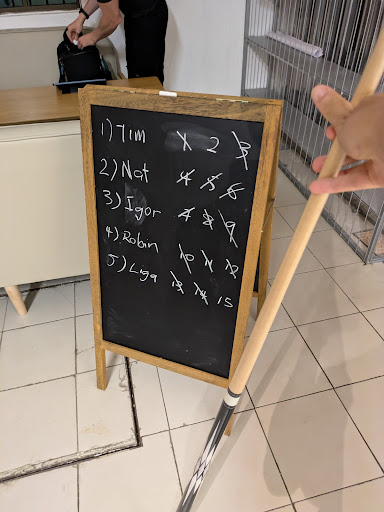 1) Tim 1 2 3
2) Nat 4 5 6
3) Igor 7 8 9
4) Robin 10 11 12
5) Liga 13 14 15